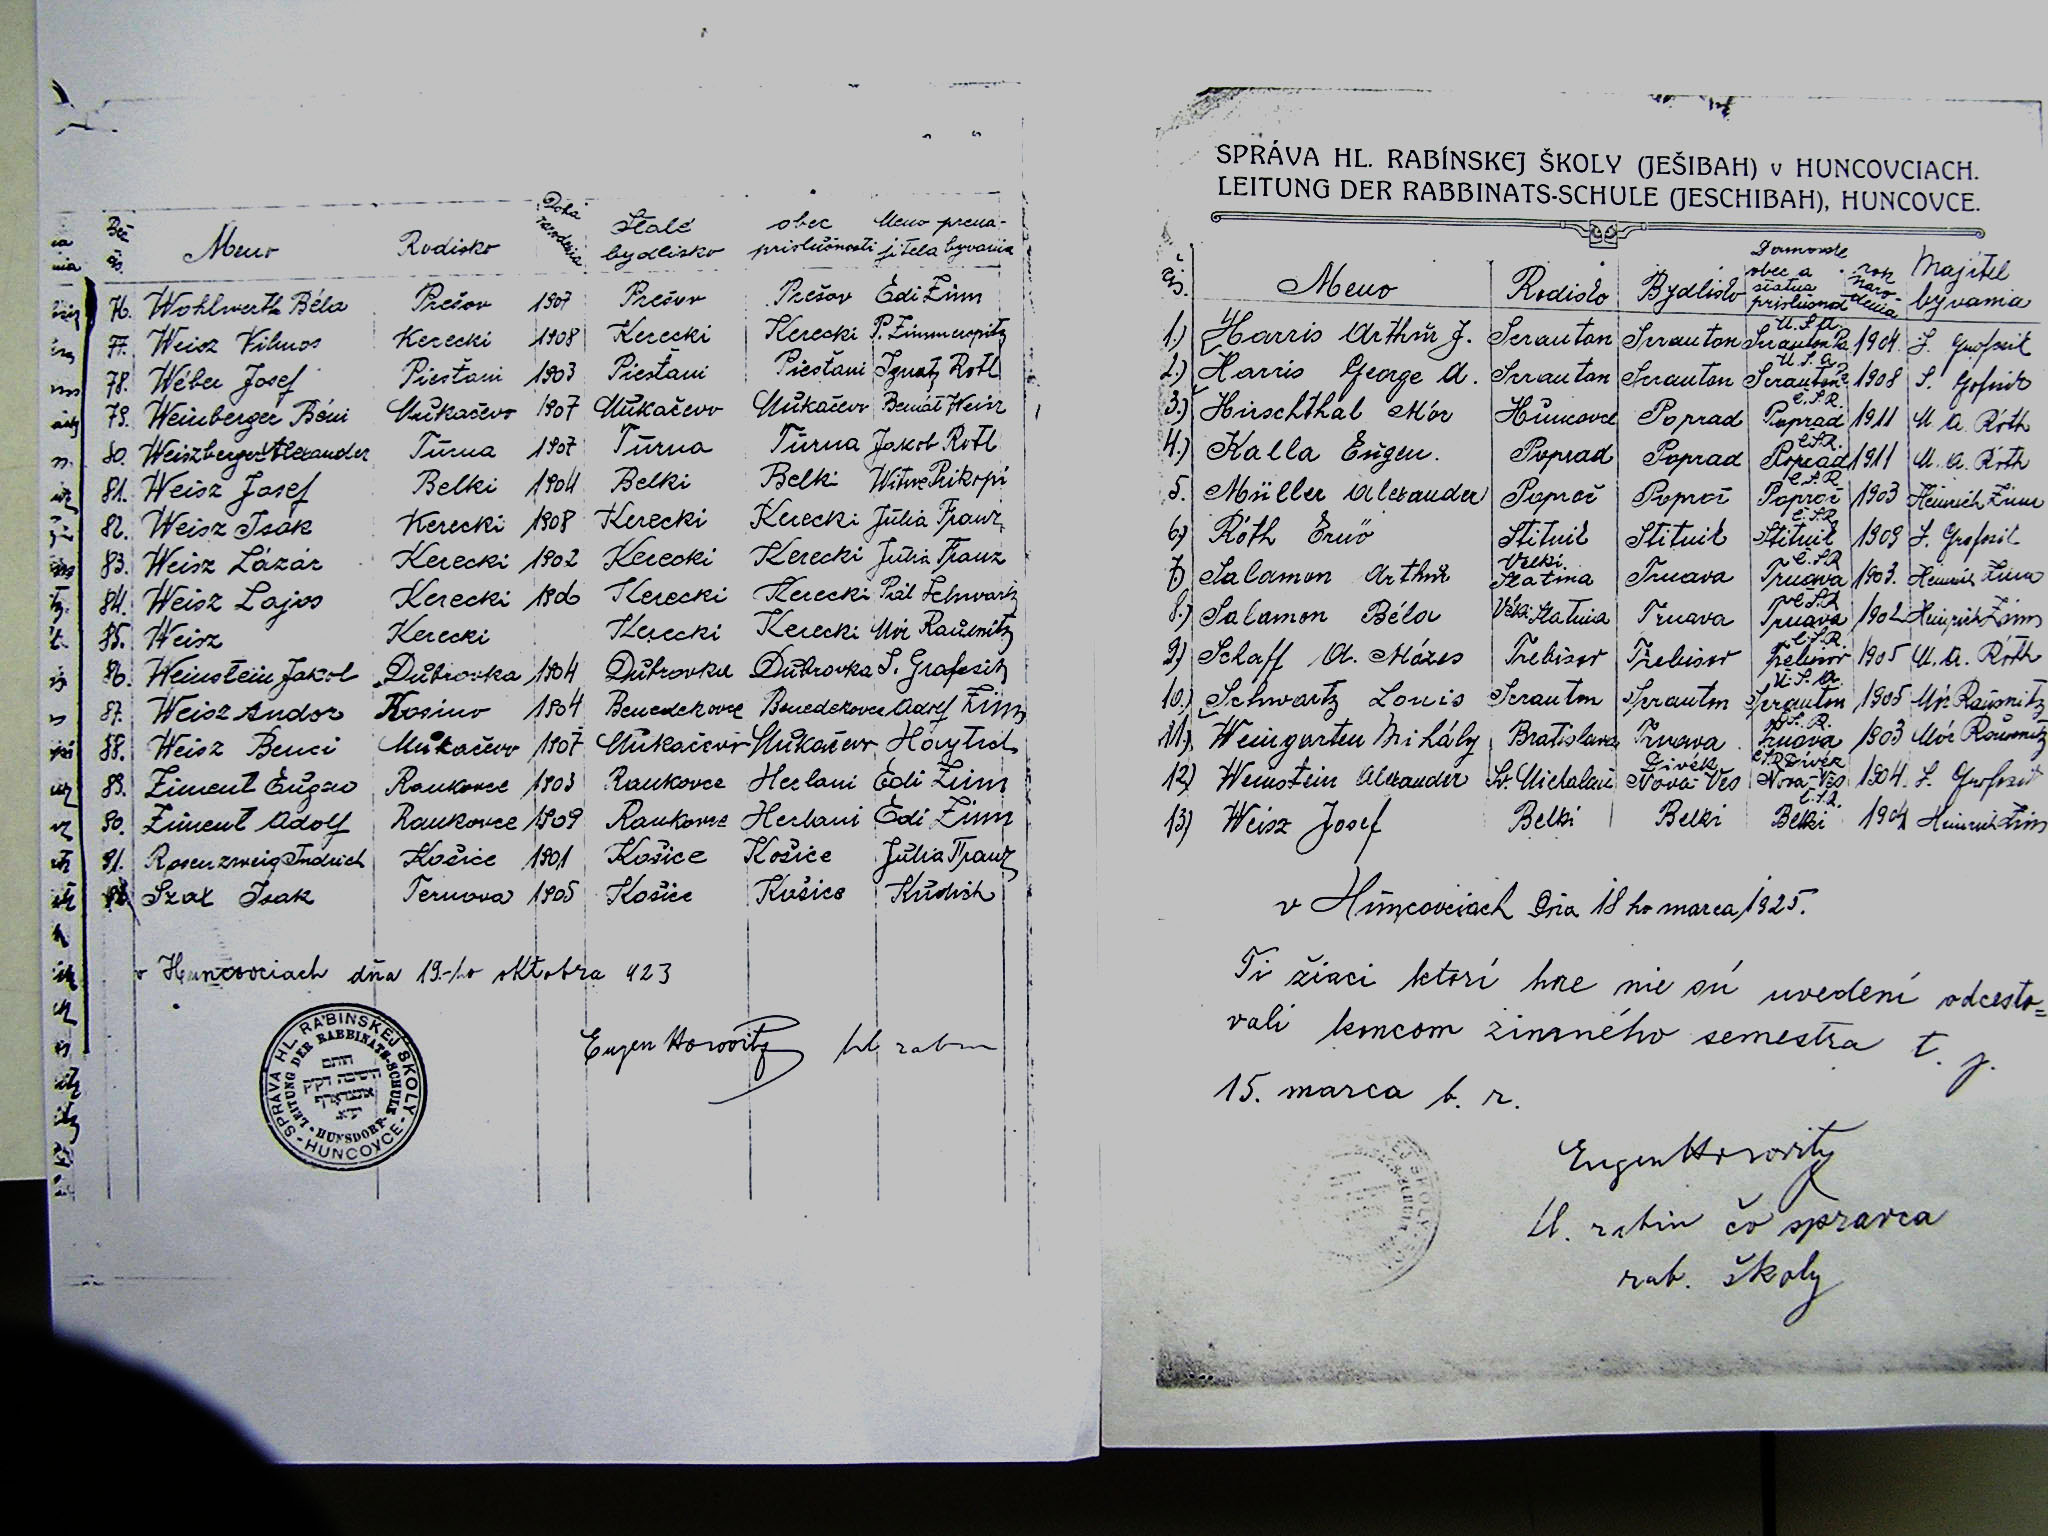 Beč. čís. Meno Rodisko Doba narodenia Stalé bydlisko obec príslušnosti Meno prenajitela byvania
76. Wohlwerth Béla Prešov 1907 Prešov Prešov Edi Zinn
77. Weisz Vilmos Kerecki 1908 Kerecki Kerecki P. Zimmerspitz
78. Weber Josef Piešťani 1903 Piešťani Piešťani Ignatz Rotl
79. Weinberger Béni Mukačevo 1907 Mukačevo Mukačevo Bernát Weisz
80. Weiszberger Alexander Turna 1907 Turna Turna Jakob Rotl
81. Weisz Josef Belki 1904 Belki Belki Witwe Prikopi
82. Weisz Isák Kerecki 1908 Kerecki Kerecki Julia Franz
83. Weisz Lázár Kerecki 1902 Kerecki Kerecki Julia Franz
84. Weisz Lajos Kerecki 1906 Kerecki Kerecki Pál Schwartz
85. Weisz Kerecki Kerecki Kerecki Mór Rausnitz
86. Weinstein Jakob Dubrovka 1904 Dubrovka Dubrovka S. Grafesitz
87. Weisz Andor Kosino 1904 Benedekovce Benedekovce Adolf Zinn
88. Weisz Benci Mukačevo 1907 Mukačevo Mukačevo
89. Ziment Eugen Rankovce 1903 Rankovce Herlani Edi Zinn
90. Ziment Adolf Rankovce 1909 Rankovce Herlani Edi Zinn
91. Rosenzweig Indrich Košice 1901 Košice Košice Julia Franz
92. Szax Isak Ternova 1905 Košice Košice Kudish
v Huncovciach dňa 19.-ho oktobra 923
Eugen Horovitz hl. rabin
SPRÁVA HL. RABINSKEJ ŠKOLY
LEITUNG DER RABBINATS-SCHULE
חותם
הישיבה דקק
אונסדארף
יע״א
HUNSDORF
HUNCOVCE
SPRÁVA HL. RABÍNSKEJ ŠKOLY (JEŠIBAH) v HUNCOVCIACH.
LEITUNG DER RABBINATS-SCHULE (JESCHIBAH), HUNCOVCE.
čís. Meno Rodisko Bydlisko Domovská obec a štátna príslušnosť rok narodenia Majitel bývania
1.) Harris Arthur J. Scranton Scranton Scranton Pa U.S.A. 1904 S. Grofesit
2.) Harris George A. Scranton Scranton Scranton U.S.A. 1908 S.
3.) Hirschthal Mór Huncovce Poprad Poprad Č.S.R. 1911 M. A. Róth
4.) Kalla Eugen. Poprad Poprad Poprad Č.S.R. 1911 M. A. Róth
5. Müller Alexander Poproč Poproč Poproč Č.S.R. 1903 Heinrich Zinn
6.) Róth Ernö Štitnik Štitnik Štitnik Č.S.R. 1909 S. Grofesit
7.) Salamon Arthur Velki Slatina Trnava Trnava Č.S.R. 1903. Heinrich Zinn
8.) Salamon Béla Velki Slatina Trnava Trnava Č.S.R. 1902 Heinrich Zinn
9.) Schaff A. Mózes Trebisov Trebisov Trebisov Č.S.R. 1905 M. A. Róth
10.) Schwartz Louis Scranton Scranton Scranton U.S.A. 1905 Mór Rausnitz
11.) Weingarten Mihály Bratislava Trnava Trnava Č.S.R. 1903 Mór Rausnitz
12.) Weinstein Alexander Sv. Michalani Divék Nová-Ves Divék Nová-Ves Č.S.R. 1904. S. Grofesit
13.) Weisz Josef Belki Belki Belki Č.S.R. 1904 Heinrich Zinn
v Huncovciach dňa 18 ho marca 1925.
Ti žiaci ktorí hore nie sú uvedení odcesto=
vali koncom zimného semestra t. j.
15. marca b. r.
Eugen Horovitz
hl. rabin čo správca
rab. školy